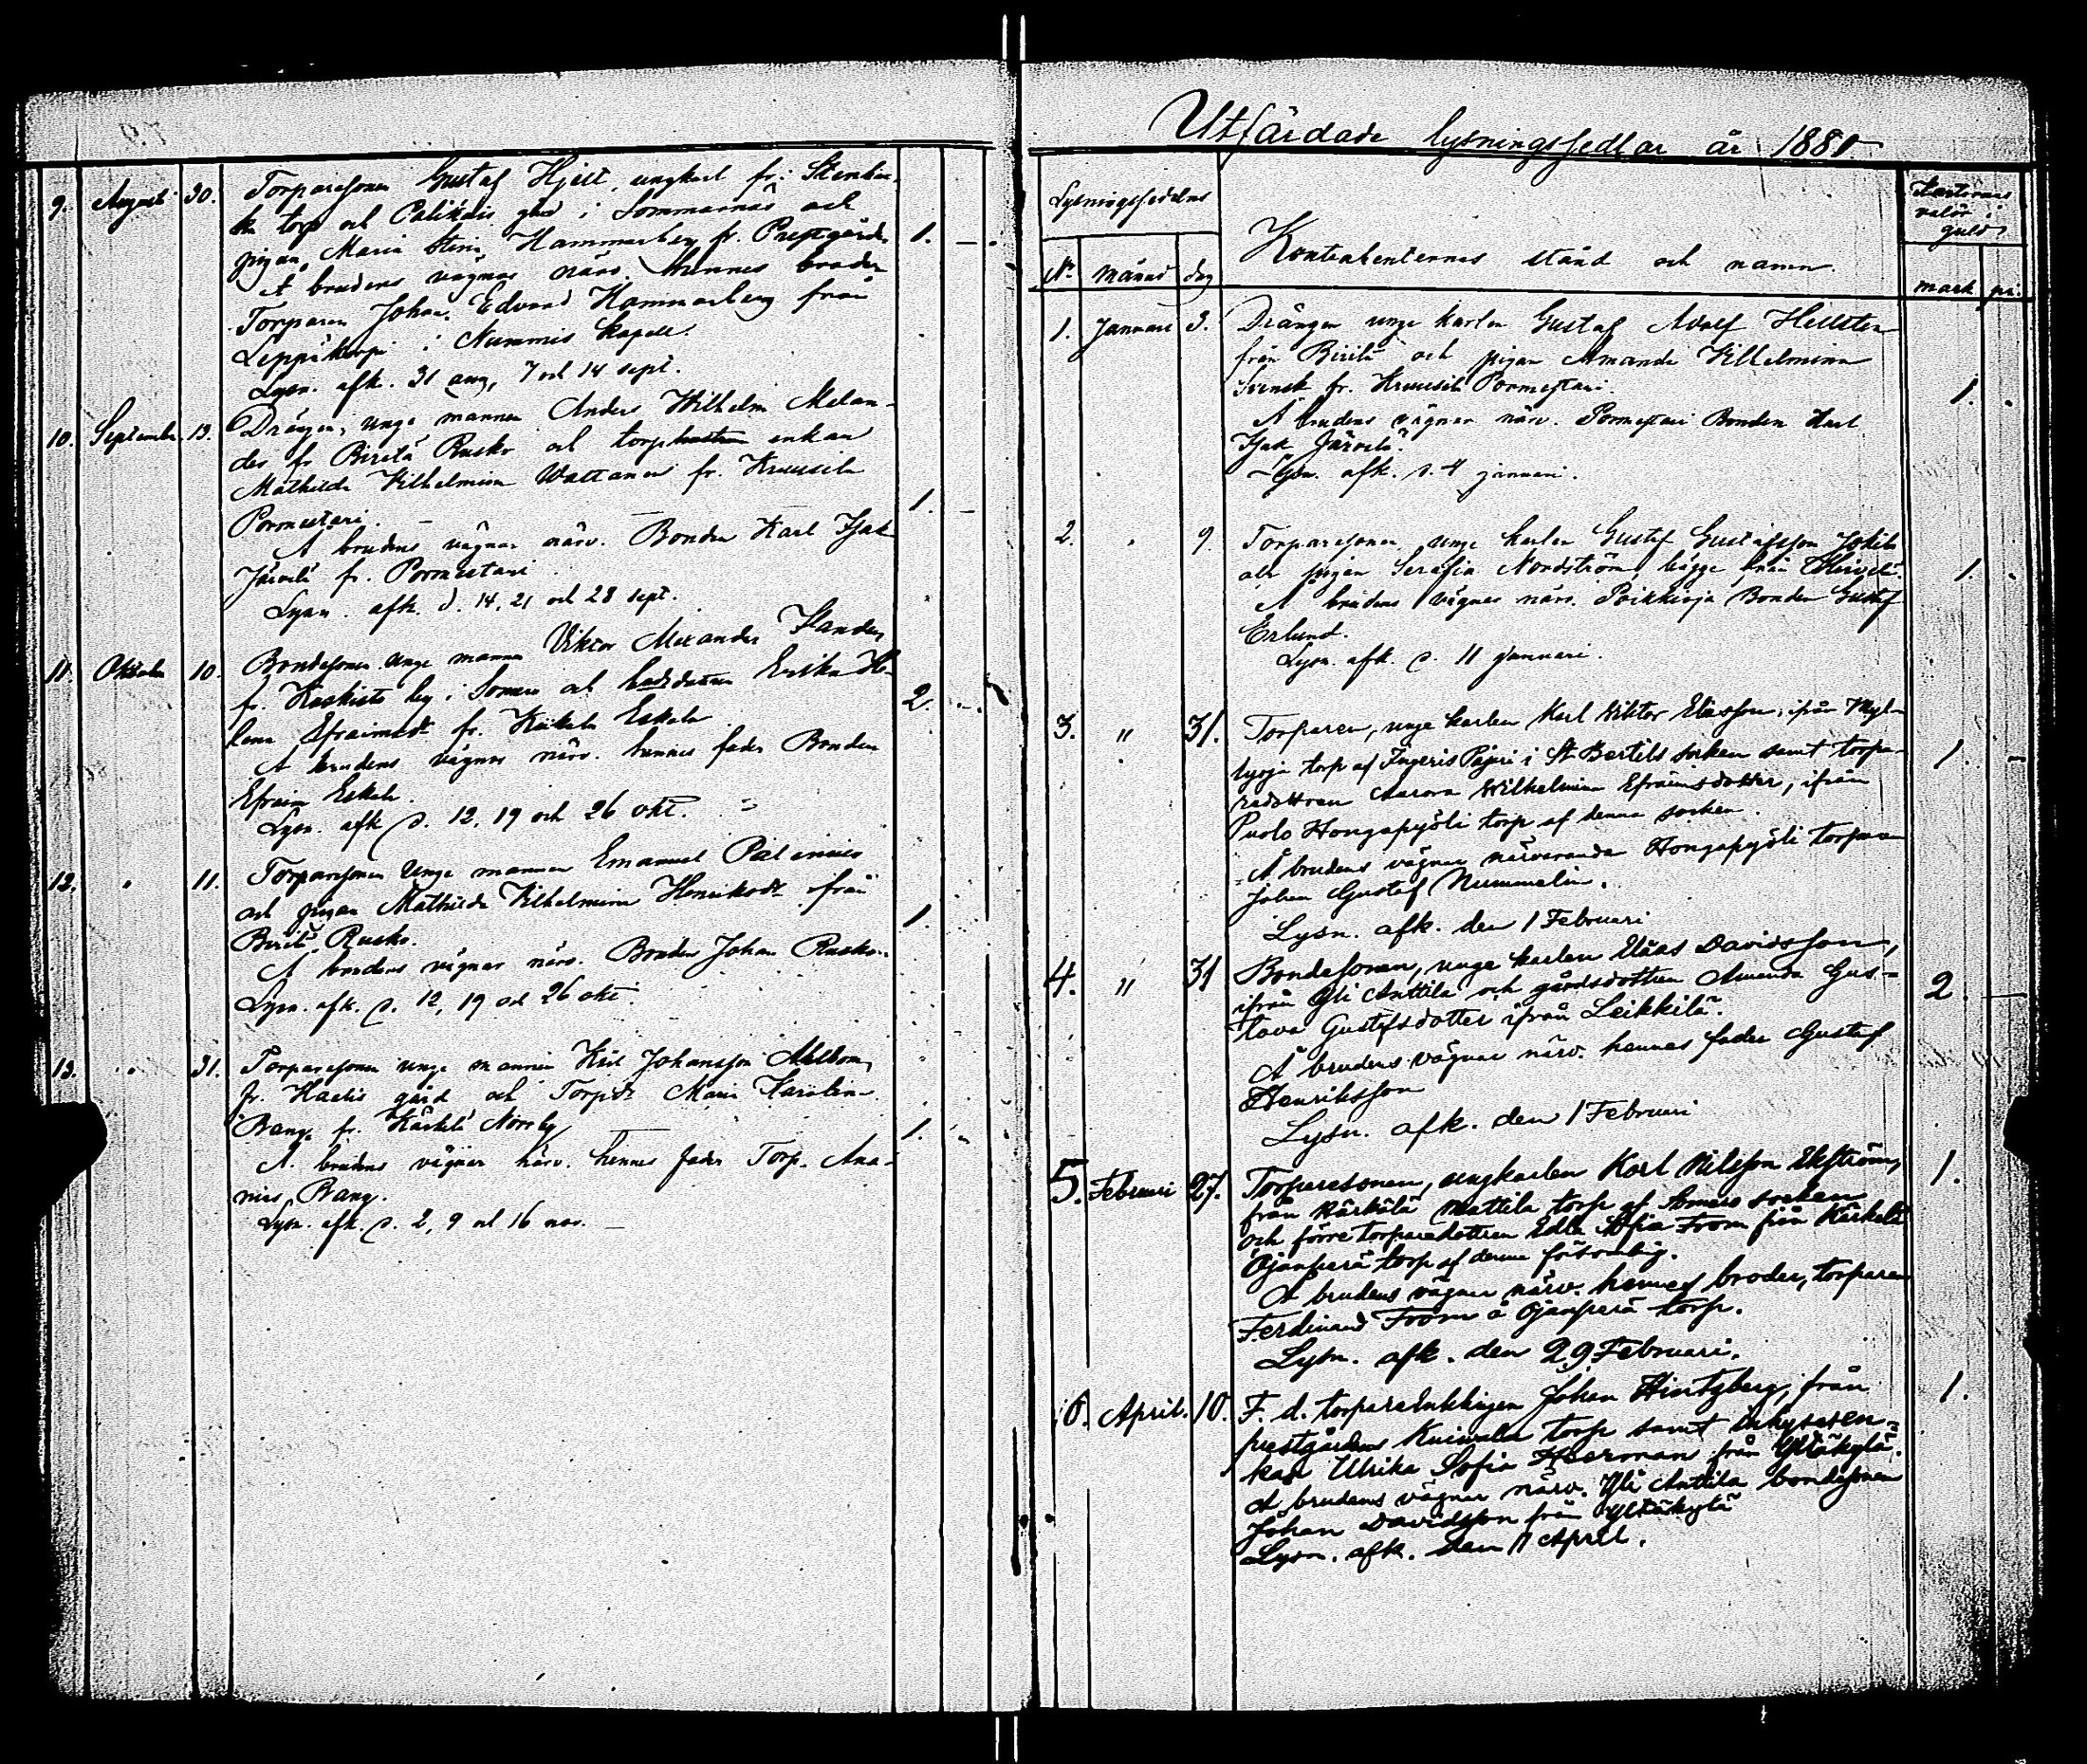 9. Augusti 30. Torparesonen Gustaf Hjelt, ungkarl fr.
torp och Palikais gård i Sommarnäs och
pigan Maria Stina Hammarberg fr. Prestgård.
Å brudens vägnar närv. hennes broder
Torparen Johan Edvard Hammarberg från
Leppäkorpi i Nummis Kapell. 1. —
Lysn. afk. 31 aug, 7 och 14 sept.
10. September. 13. Drängen, unge mannen Anders Wilhelm Melan-
der fr Biritä Rusko och torp enkan
Mathilda Vilhelmina Wattanen fr. Kruusila
Pormestari. — 1. —
Å brudens vägnar närv. Bonden Karl Isak
Järvelä fr. Pormestari.
Lysn. afk. d. 14, 21 och 28 sept.
11. Oktober 10. Bondesonen unge mannen Viktor Alexander
fr. Kaskisto by i Somero och Erika He-
lena Efraimsdr fr. Eskola. 2.
Å brudens vägnar närv. hennes fader Bonden
Efraim Eskola.
Lysn. afk d. 12, 19 och 26 okt.
12. " 11. Torparesonen Unge mannen Emanuel
och pigan Mathilda Vilhelmina Henriksdr från
Biritä Rusko. 1.
Å brudens vägnar närv. Bonden Johan Rusko.
Lysn. afk. d. 12, 19 och 26 okt.
13. " 31. Torparesonen unge mannen Johansson
fr. gård och Torpdr Maria Karolina
Bang fr. Kärkelä Norrby 1.
Å brudens vägnar närv. hennes fader Torp. Ana-
nias Bang.
Lysn. afk. d. 2, 9 och 16 nov. —
Utfärdade lysningssedlar år 1880
Lysningssedelns
No månad dag
Kontrahenternes stånd och namn.
valör i
guld
mark pi.
1. Januari 3. Drängen unge karlen Gustaf Adolf Hellsten
från Biritä och pigan Amanda Vilhelmina
Svensk fr. Kruusila Pormestari. 1.
Å brudens vägnar närv. Pormestari Bonden Karl
Isak Järvelä.
Lysn. afk. d. 4 januari.
2. " 9. Torparesonen unge karlen Gustaf Gustafsson
och pigan Serafia Nordström, bägge från 1.
Å brudens vägnar närv. Bonden Gustaf
Erlund.
Lysn. afk. d. 11 Januari.
3. " 31. Torparen, unge karlen Karl Viktor Eliasson, ifrån Myl-
lyoja torp af Ingeris Pajari i St Bertils socken samt torpa- 1. —
redottren Aurora Wilhelmina Efraimsdotter, ifrån
Puolo Hongapyöli torp af denna socken.
Å brudens vägnar närvarande Hongapyöli torpare
Johan Gustaf Nummelin.
Lysn. afk. den 1 Februari
4. " 31 Bondesonen, unge karlen Elias Davidsson,
ifrån Yli Anttila och gårdsdottren Amanda Gus- 2. —
tava Gustafsdotter ifrån Leikkilä.
Å brudens vägnar närv. hennes fader Gustaf
Henriksson
Lysn. afk. den 1 Februari
5. Februari 27. Torparesonen, ungkarlen Karl Nilsson Ekström, 1.
från Kärkälä Mattila torp af Somero socken
och förre torparedottren Edla Sofia From från Kärkelä
Ojanperä torp af denna församling.
Å brudens vägnar närv. hennes broder, torparen
Ferdinand From å Ojanperä torp.
Lysn. afk. den 29 Februari.
6. April. 10. F. d. torpareenklingen Johan Hintzberg, från 1.
prestgårdens torp samt inhysesen-
kan Ulrika Sofia från Yltäkylä.
Å brudens vägnar närv. Yli Anttila bondesonen
Johan Davidsson från Yltäkylä
Lysn. afk. den 11 April.